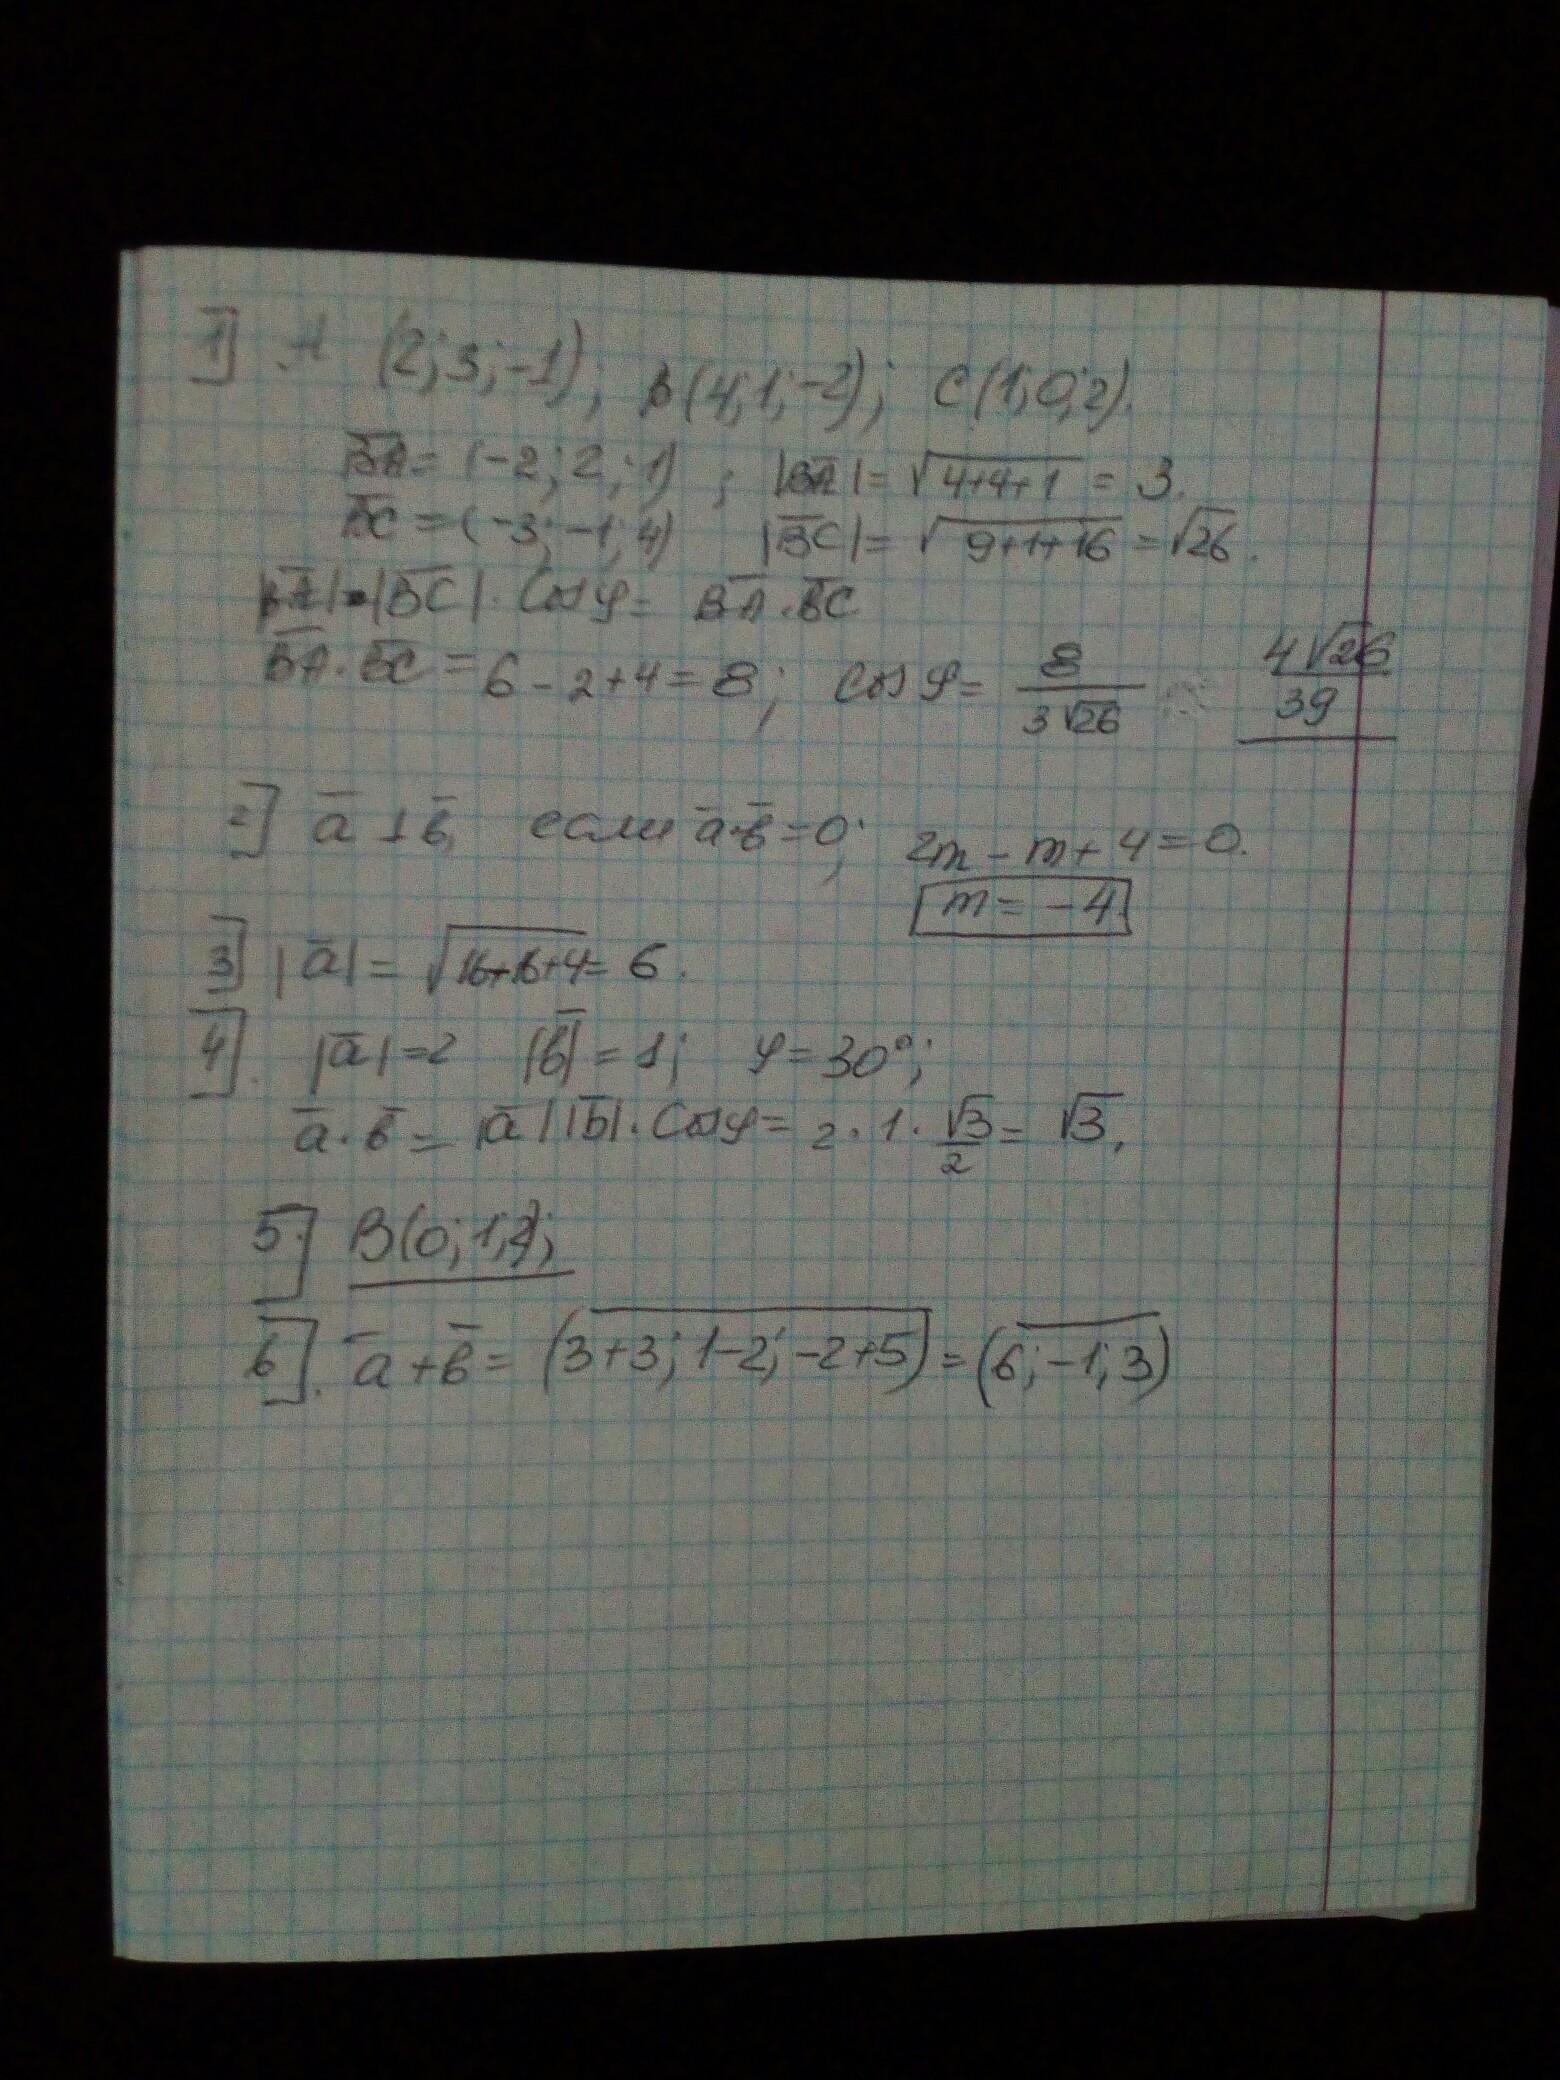 1] A (2; 3; -1); B(4; 1; -2); C(1; 0; 2).
B̅A̅ = (-2; 2; 1) ; |B̅A̅| = √(4+4+1) = 3.
B̅C̅ = (-3; -1; 4) |B̅C̅| = √(9+1+16) = √26.
|B̅A̅|·|B̅C̅|·cos φ = B̅A̅·B̅C̅
B̅A̅·B̅C̅ = 6 - 2 + 4 = 8; cos φ = 8/(3√26) 4√26/39
2] a̅ ⊥ b̅, если a̅·b̅ = 0; 2m - m + 4 = 0.
m = -4.
3] |a̅| = √(16+16+4) = 6.
4]. |a̅| = 2 |b̅| = 1; φ = 30°;
a̅·b̅ = |a̅||b̅|·cos φ = 2·1·√3/2 = √3.
5] B(0; 1; 2);
6]. a̅ + b̅ = (3+3; 1-2; -2+5) = (6; -1; 3)